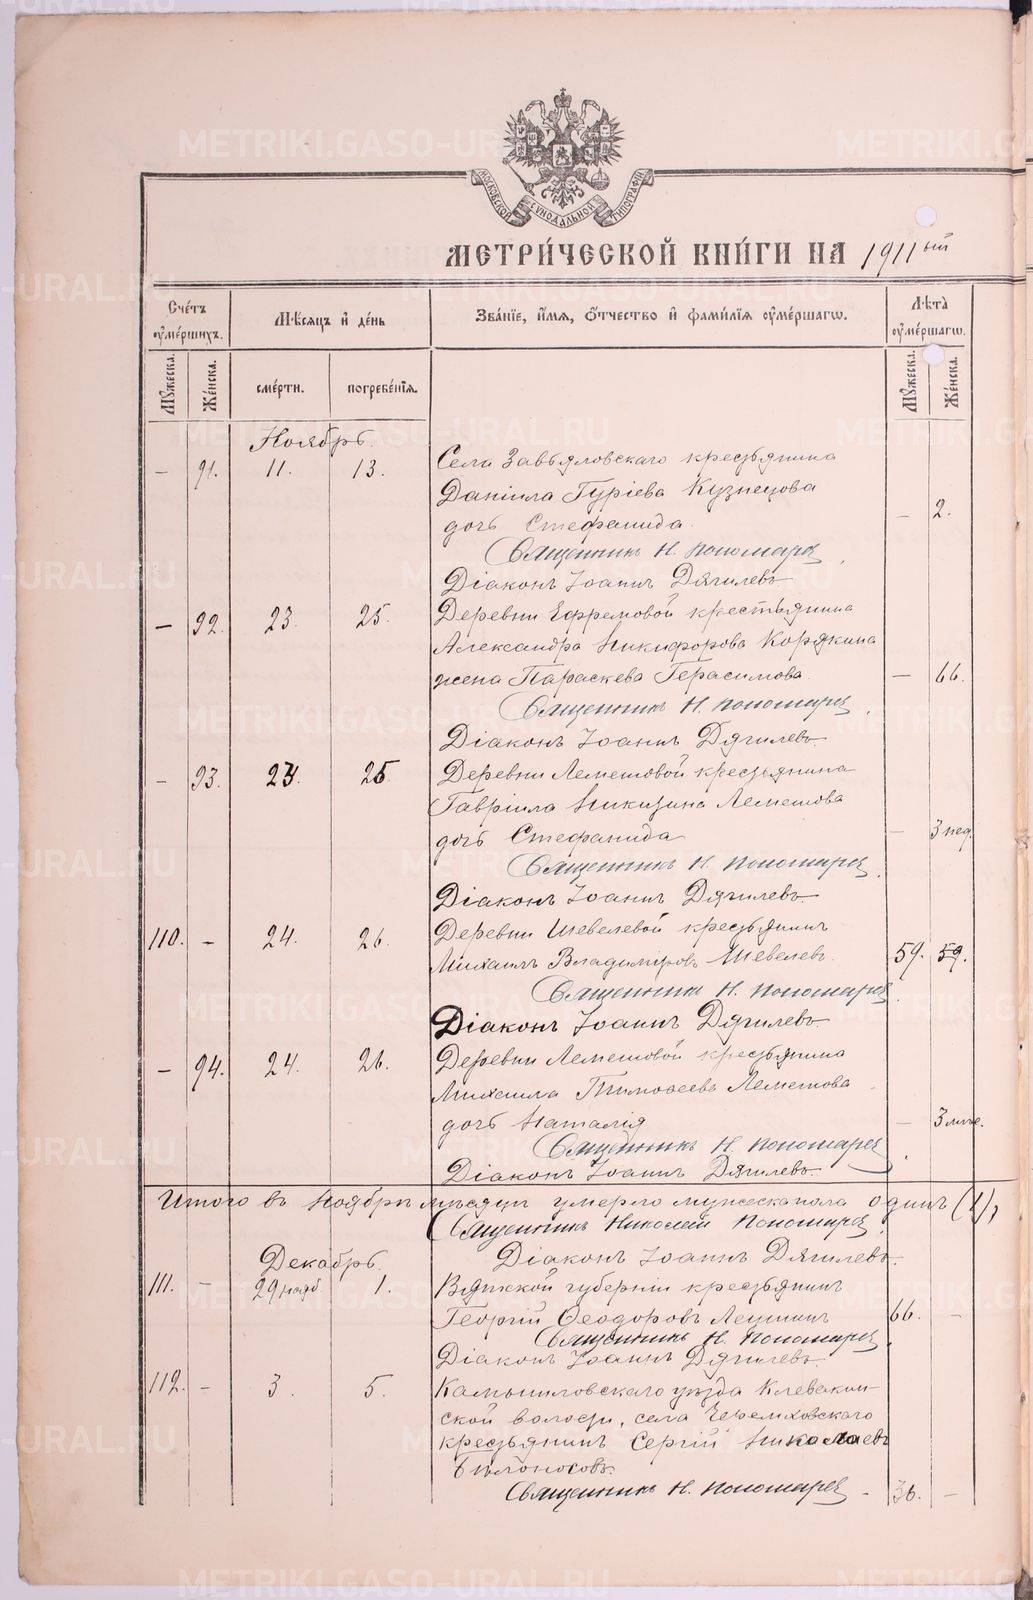 МОСКОВСКОЙ СѴНОДАЛЬНОЙ ТИПОГРАФІИ
МЕТРИ́ЧЕСКОЙ КНИ́ГИ НА 1911ый
Счетъ оумершихъ.
Мѣсяцъ и день
Званіе, имя, отчество и фамилія оумершагѡ.
Лѣта оумершагѡ.
Мужеска.
Женска.
смерти.
погребенія.
Мужеска.
Женска.
Ноябрь.
— 91. 11. 13. Села Завьяловскаго крестьянина
Даніила Гуріева Кузнецова
дочь Стефанида. — 2.
Священникъ Н. Пономарев
Діаконъ Іоаннъ Дягилевъ
— 92. 23. 25. Деревни Ефремовой крестьянина
Александра Никифорова Корякина
жена Параскева Герасимова. — 66.
Священникъ Н. Пономарев
Діаконъ Іоаннъ Дягилевъ
— 93. 24. 25. Деревни Лемешовой крестьянина
Гавріила Никизина Лемешова
дочь Стефанида — 3 нед.
Священникъ Н. Пономарев
Діаконъ Іоаннъ Дягилевъ
110. — 24. 26. Деревни Шевелевой крестьянинъ
Михаилъ Владиміровъ Шевелевъ. 59. 59.
Священникъ Н. Пономарев
Діаконъ Іоаннъ Дягилевъ
— 94. 24. 26. Деревни Лемешовой крестьянина
Михаила Тимофеевъ Лемешова
дочь Наталія — 3 мѣс.
Священникъ Н. Пономарев
Діаконъ Іоаннъ Дягилевъ.
Итого въ Ноябрѣ мѣсяцѣ умерло мужеска пола одинъ (1),
Священникъ Николай Пономарев
Діаконъ Іоаннъ Дягилевъ.
Декабрь.
111. — 29 нояб. 1. Вятской губерніи крестьянинъ
Георгій Феодоровъ 66. —
Священникъ Н. Пономарев
Діаконъ Іоаннъ Дягилевъ.
112. — 3. 5. Камышловскаго уѣзда Клевакин-
ской волости, села Черемховскаго
крестьянинъ Сергій Николаевъ
Бѣлоносовъ.
Священникъ Н. Пономарев 36. —
METRIKI.GASO-URAL.RU